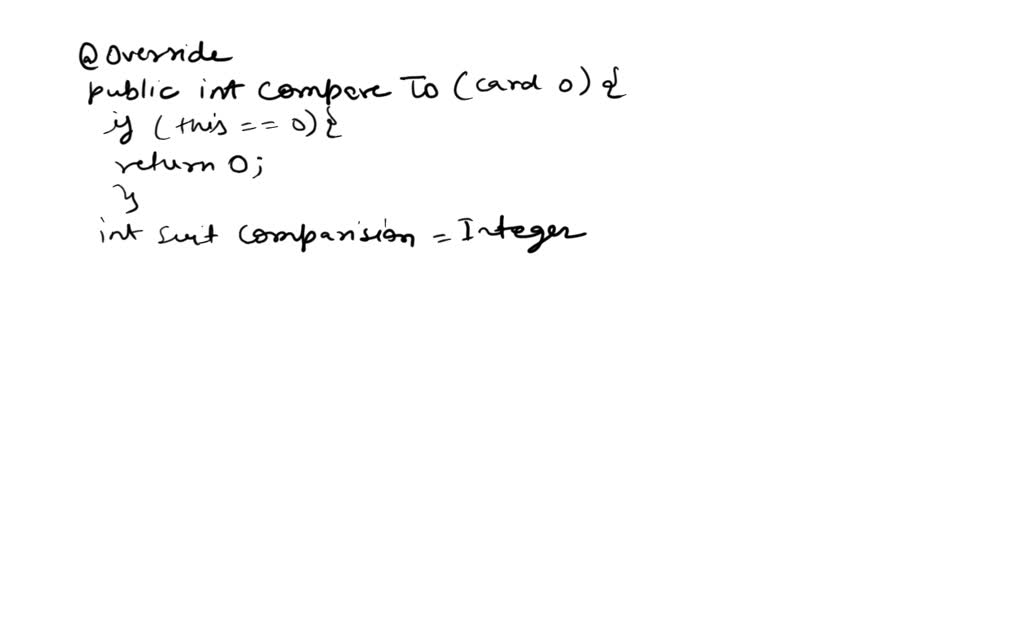 @ Override
public int compare To (card o) {
if (this == o) {
return 0;
}
int suit comparision = Integer